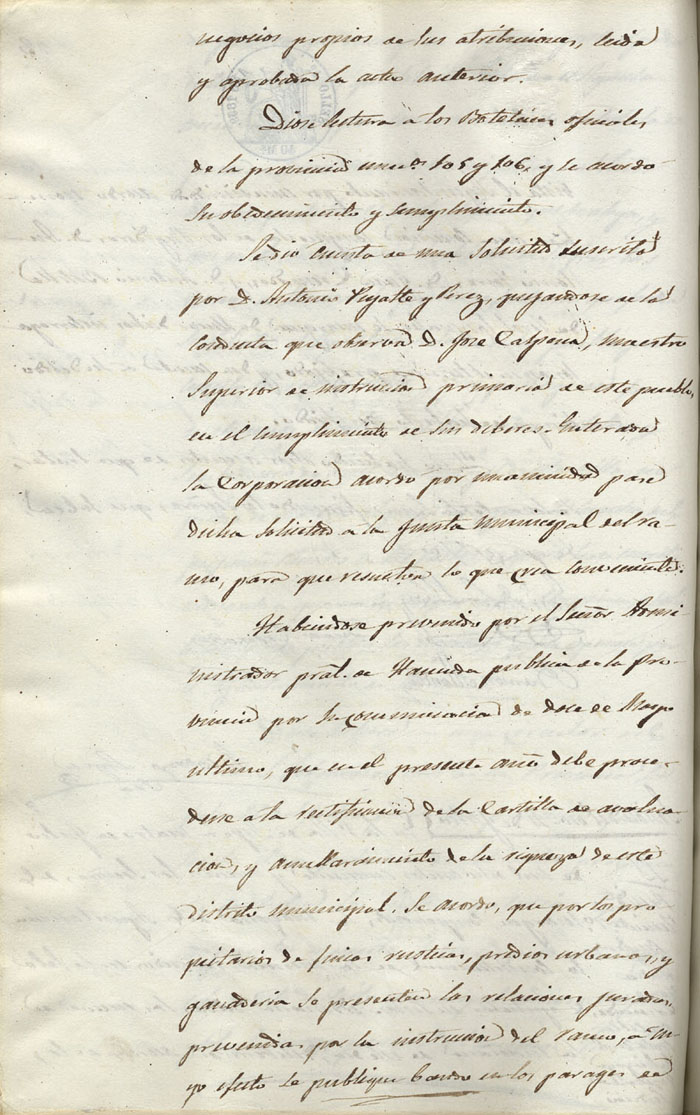 negocios propios de sus atribuciones, leida
y aprobada la acta anterior.
Diose lectura a los Boletines oficiales
de la provincia num.os 105 y 106, y se acordo
su obedecimiento y cumplimiento.
Se dió cuenta de una solicitud suscrita
por D. Antonio Pujalte y Perez, quejandose de la
conducta que observa D. Jose Calpena, maestro
Superior de instruccion primaria de este pueblo,
en el cumplimiento de sus deberes. Enterada
la Corporacion acordo por unanimidad pase
dicha solicitud a la Junta municipal del ra-
mo, para que resuelva lo que crea conveniente.
Habiendose prevenido por el Señor Admi
nistrador pral. de Hacienda publica de la Pro-
vincia por su comunicacion de doce de Mayo
ultimo, que en el presente año debe proce-
derse a la rectificacion de la Cartilla de evalua-
cion, y amillaramiento de la riqueza de este
distrito municipal. Se acordo, que por los pro
pietarios de fincas rusticas, predios urbanos, y
ganaderia se presenten las relaciones juradas,
prevenidas por la instruccion del ramo, a cu
yo efecto se publique bando en los parages de